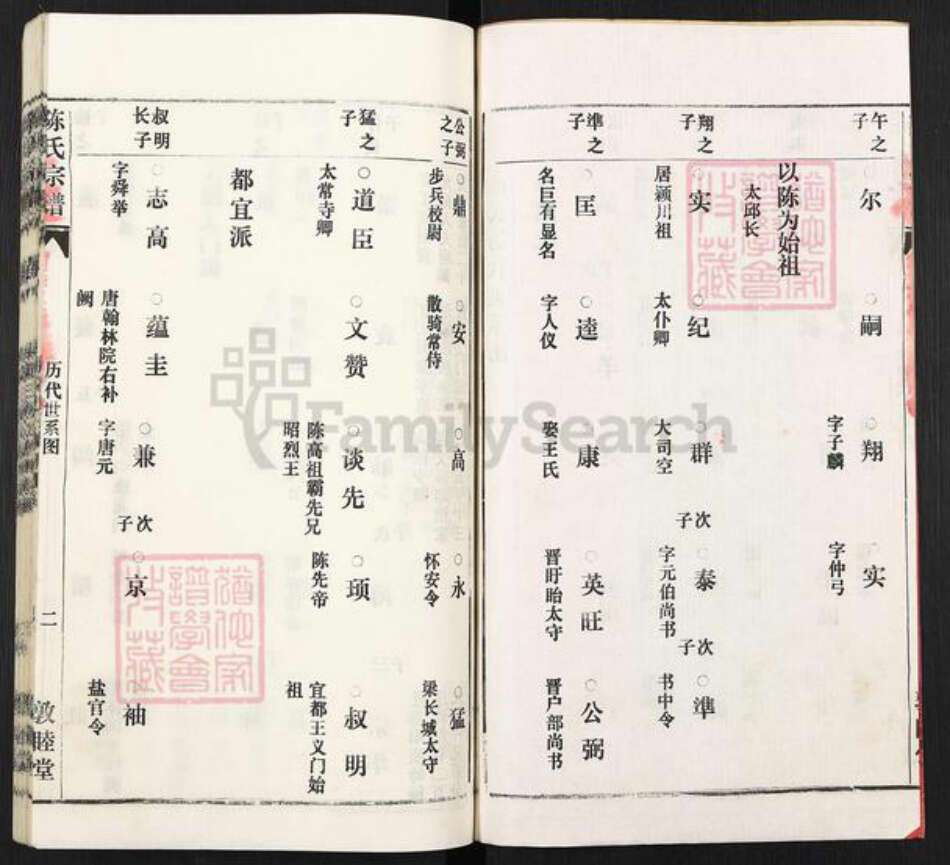 午之子
○尔
○嗣
○翔
字子麟
○实
字仲弓
以陈为始祖
太邱长
翔之子
○实
居颍川祖
○纪
太仆卿
○群
大司空
次子
○泰
字元伯尚书
次子
○準
书中令
準之子
○匡
名巨有显名
○逵
字人仪
○康
娶王氏
○英旺
晋盱眙太守
○公弼
晋户部尚书
公弼之子
○鼎
步兵校尉
○安
散骑常侍
○高
○永
怀安令
○猛
梁长城太守
猛之子
○道臣
太常寺卿
○文赞
○谈先
陈高祖霸先兄
昭烈王
○顼
陈先帝
○叔明
宜都王义门始
祖
都宜派
叔明长子
○志高
字舜举
○蕴圭
唐翰林院右补
阙
○兼
字唐元
次子
○京
○袖
盐官令
陈氏宗谱
历代世系图
二
敦睦堂
FamilySearch